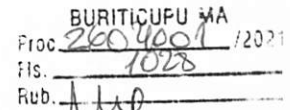 BURITICUPU MA
Proc 2604001 /2021
Fls. 1028
Rub.